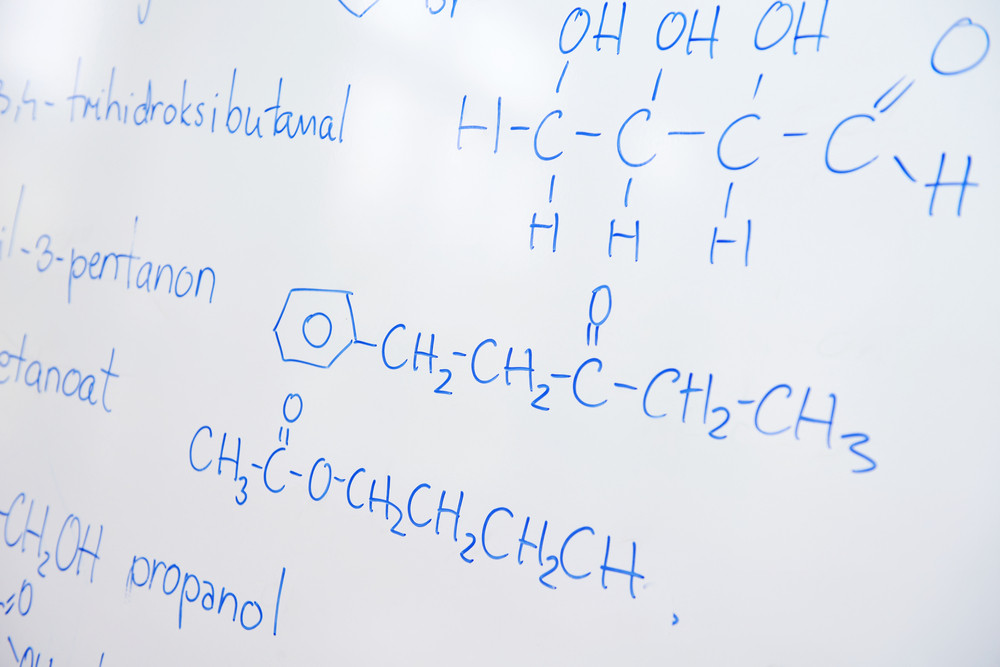 OH OH OH O
3,4-trihidroksibutanal
H-C-C-C-C H
H H H
il-3-pentanon
O
CH2-CH2-C-CH2-CH3
etanoat
O
CH3-C-O-CH2CH2CH2CH
-CH2OH propanol
=O